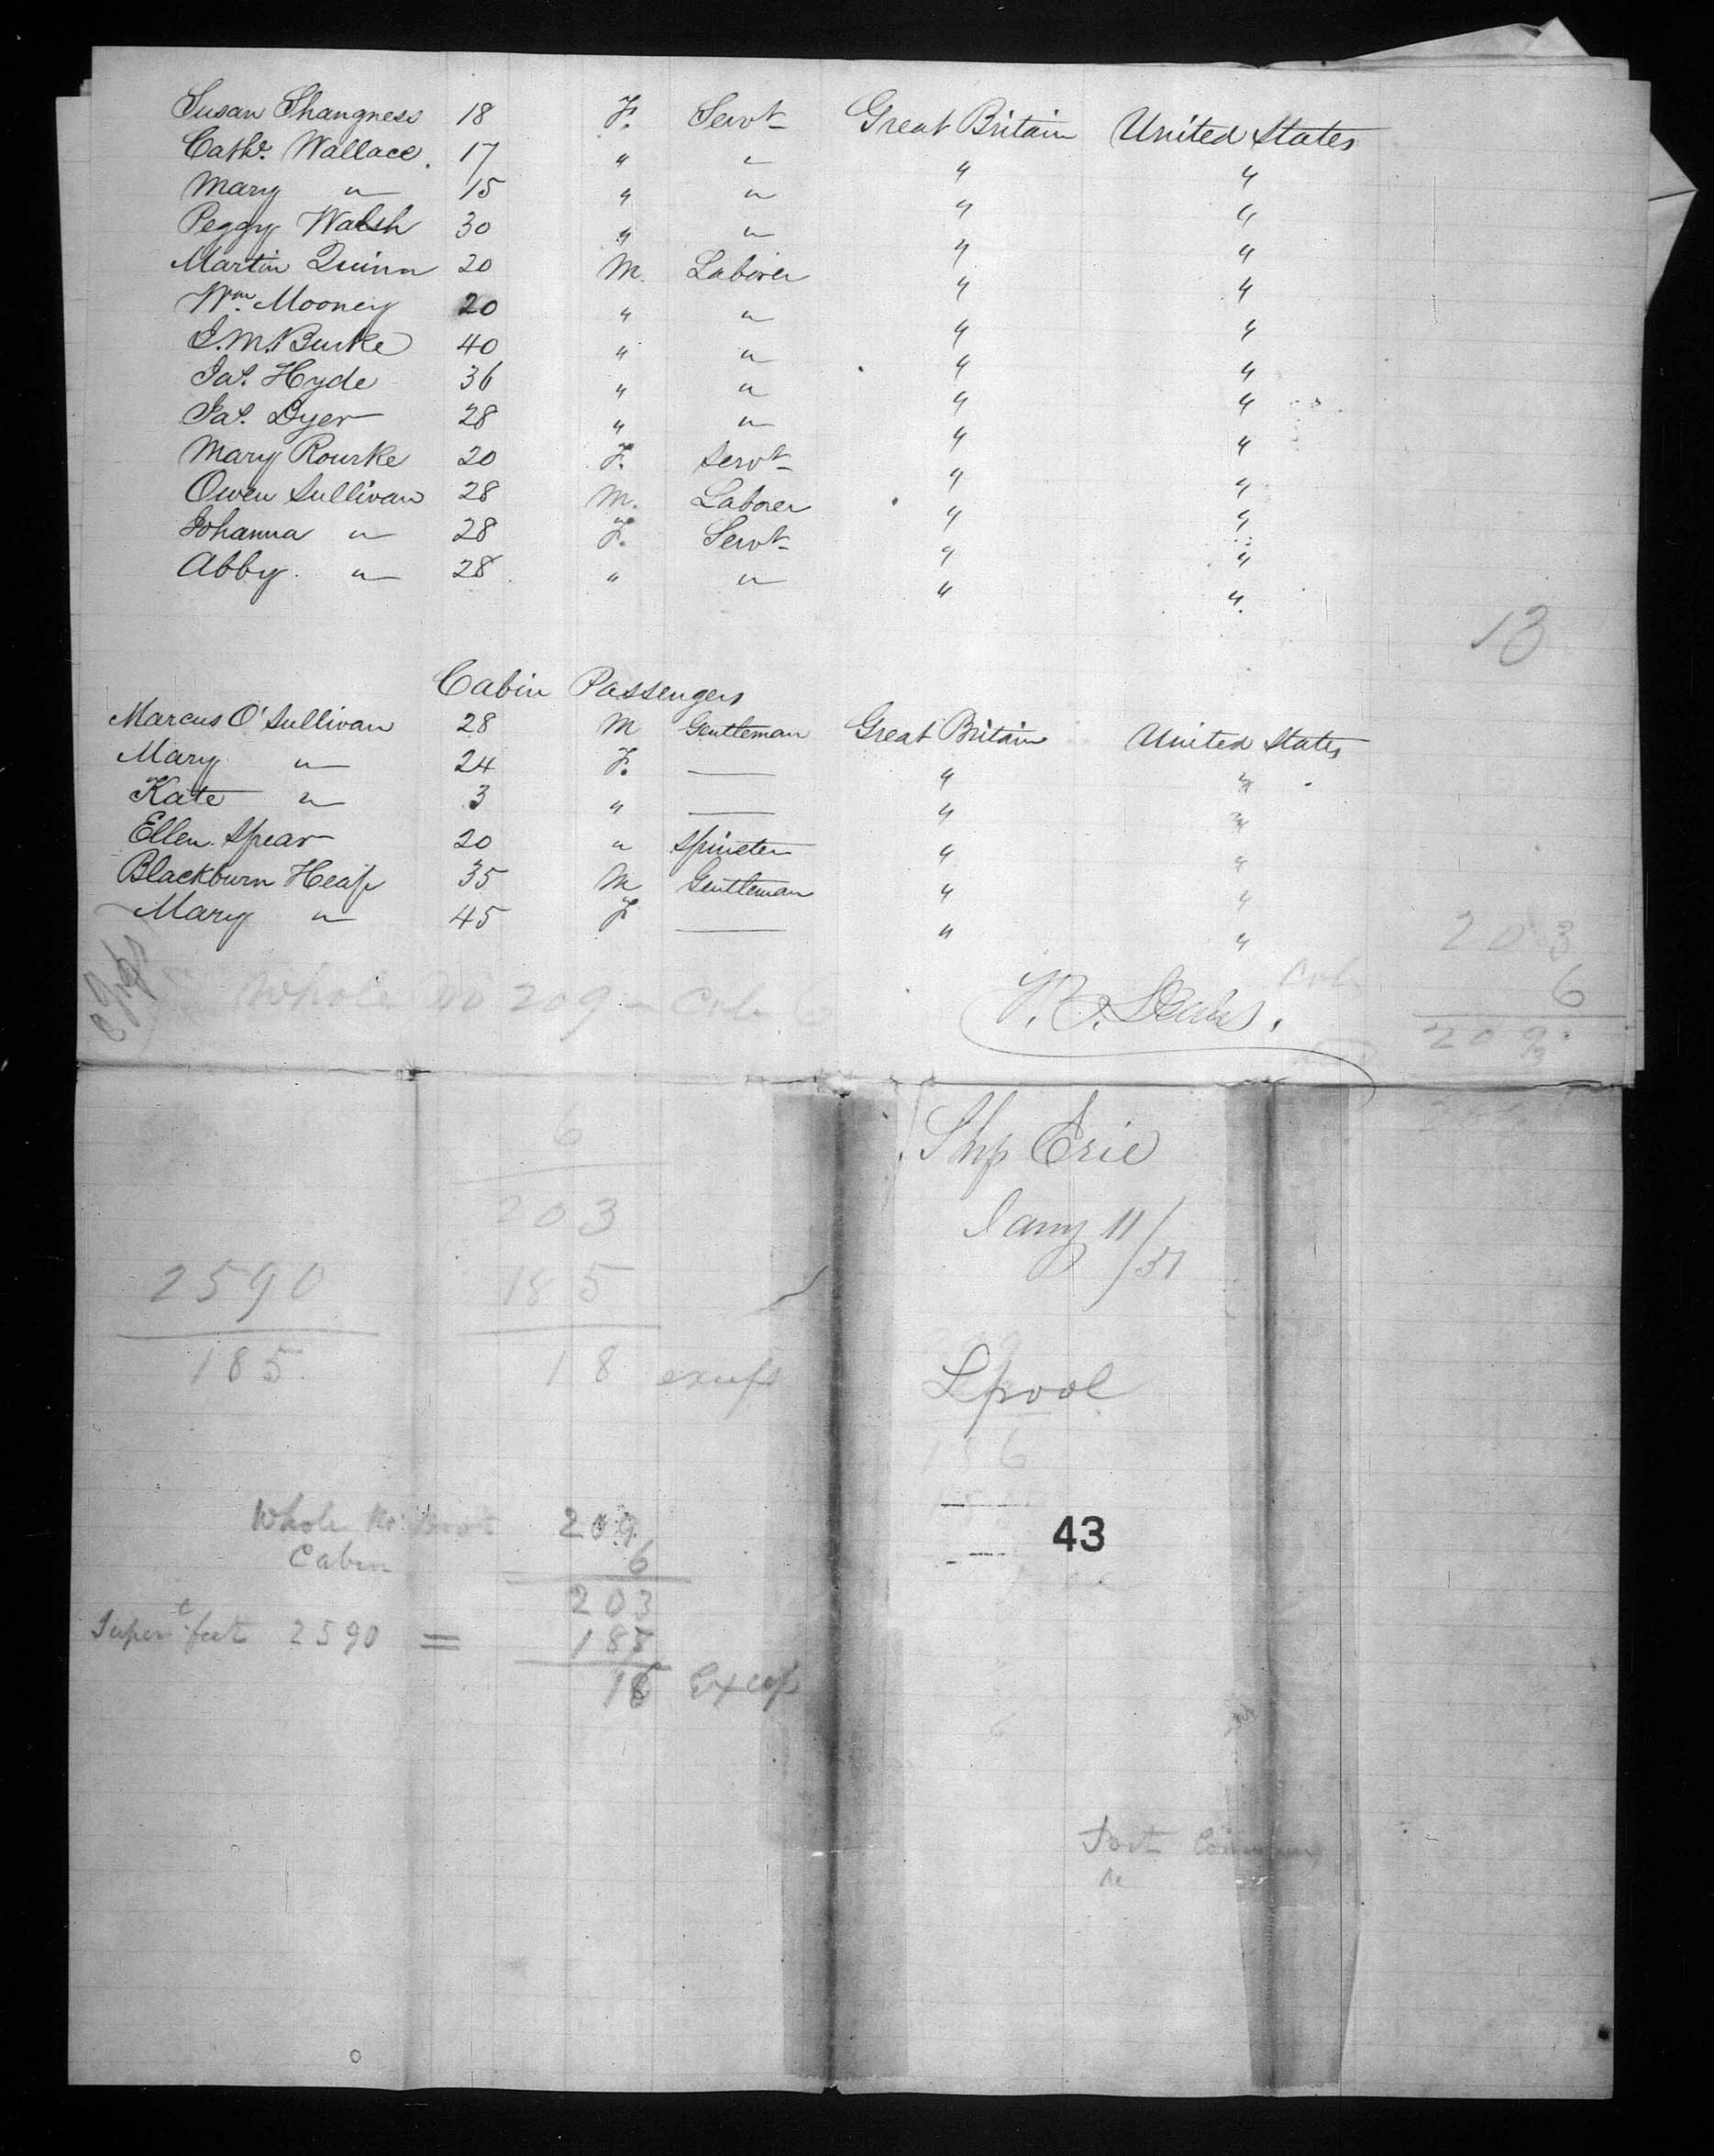 Susan Shangness 18 F. Servt Great Britain United States
Cathe. Wallace. 17 " " " "
Mary " 15 " " " "
Peggy Walsh 30 " " " "
Martin Quinn 20 M Laborer " "
Wm. Mooney 20 " " " "
J. M. Burke 40 " " " "
Jas. Hyde 36 " " " "
Jas. Dyer 28 " " " "
Mary Rourke 20 F. Servt " "
Owen Sullivan 28 M. Laborer " "
Johanna " 28 F. Servt " "
Abby. " 28 " " " "
13
Cabin Passengers
Marcus O'Sullivan 28 M Gentleman Great Britain United States
Mary " 24 F. — " "
Kate " 3 " — " "
Ellen Spear 20 " Spinster " "
Blackburn Heap 35 M Gentleman " "
Mary " 45 F — " "
203
6
209
Whole No 209 — Cab 6
Ship Erie
Jany 11/51
Lpool
43
6
203
2590 185
185 18 excess
Whole No 209
Cabin 6
203
feet 2590 = 188
Excess